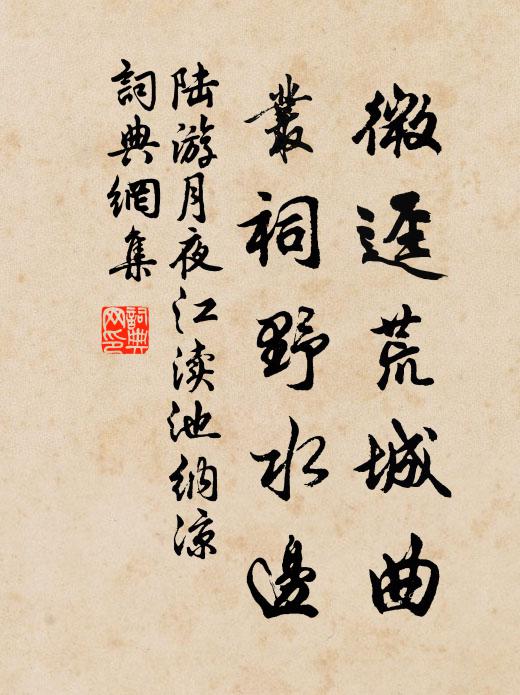 微逕荒城曲
叢祠野水邊
陆游月夜江渎池纳凉
詞典網集
詞典网印